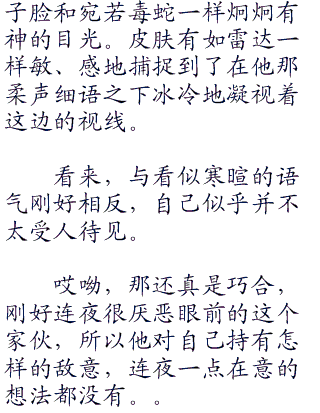 子脸和宛若毒蛇一样炯炯有
神的目光。皮肤有如雷达一
样敏、感地捕捉到了在他那
柔声细语之下冰冷地凝视着
这边的视线。
看来，与看似寒暄的语
气刚好相反，自己似乎并不
太受人待见。
哎呦，那还真是巧合，
刚好连夜很厌恶眼前的这个
家伙，所以他对自己持有怎
样的敌意，连夜一点在意的
想法都没有。。